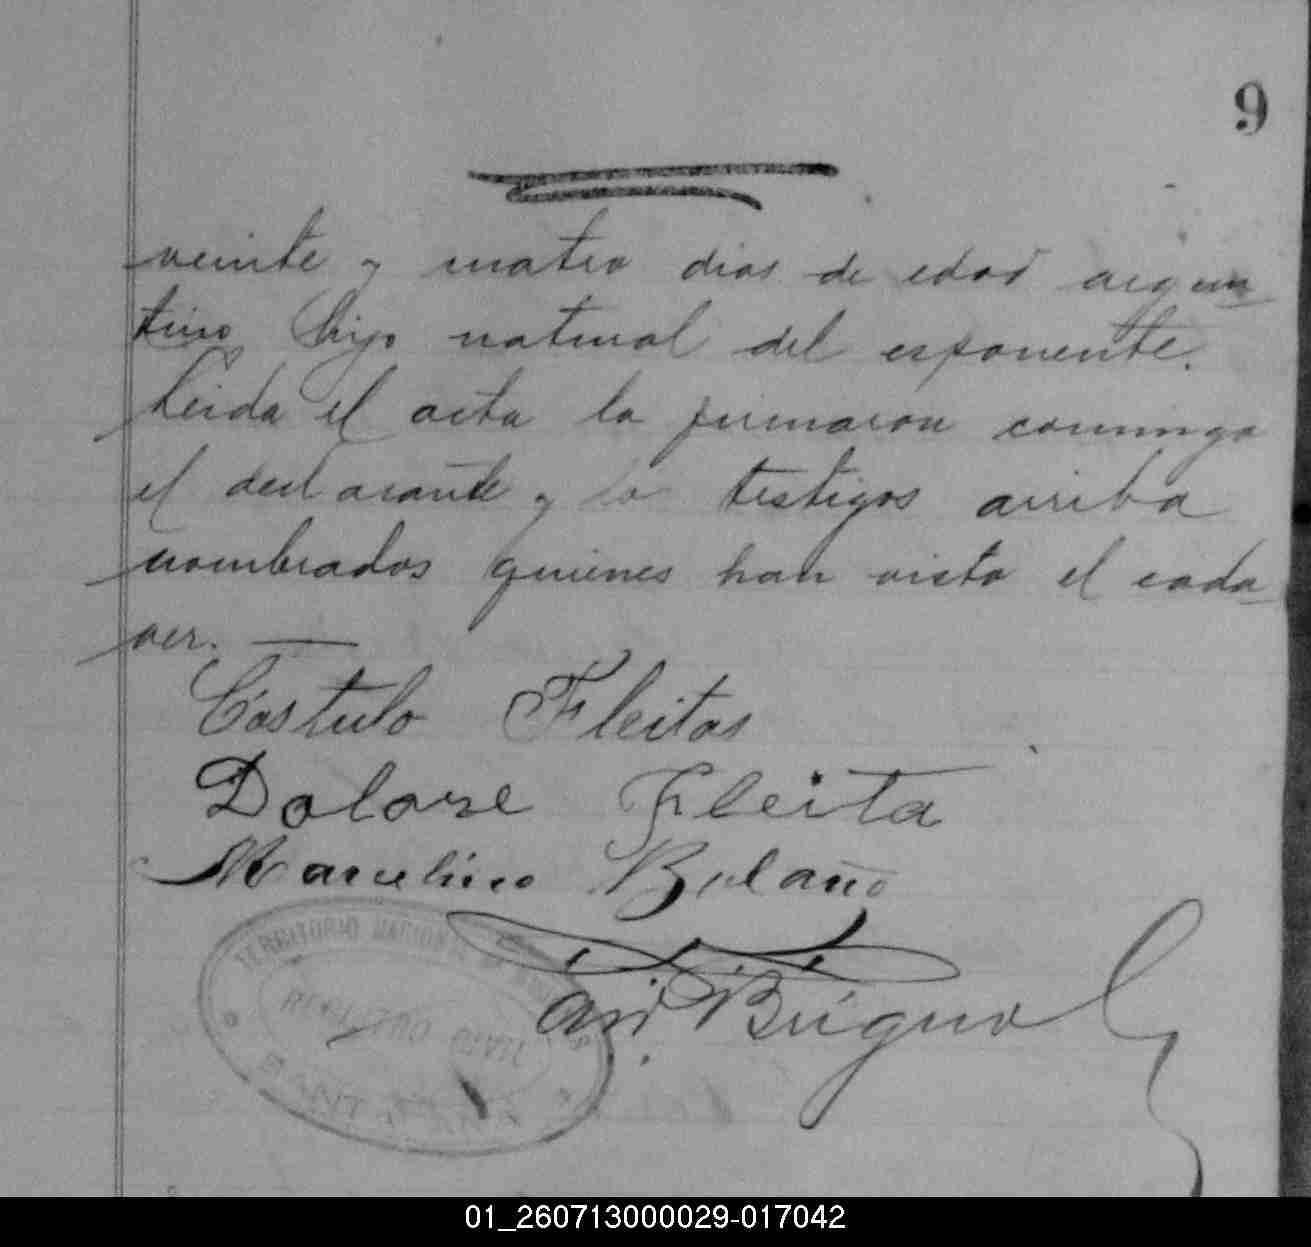 9
veinte y cuatro dias de edad argen
tino hijo natural del esponente.
Leida el acta la firmaron conmigo
el declarante y lo testigos arriba
nombrados quienes han visto el cada
ver. —
Cástulo Fleitas
Dolore Fleita
Marcelino Bolaño
TERRITORIO NACIONAL DE
REGISTRO CIVIL
01_260713000029-017042